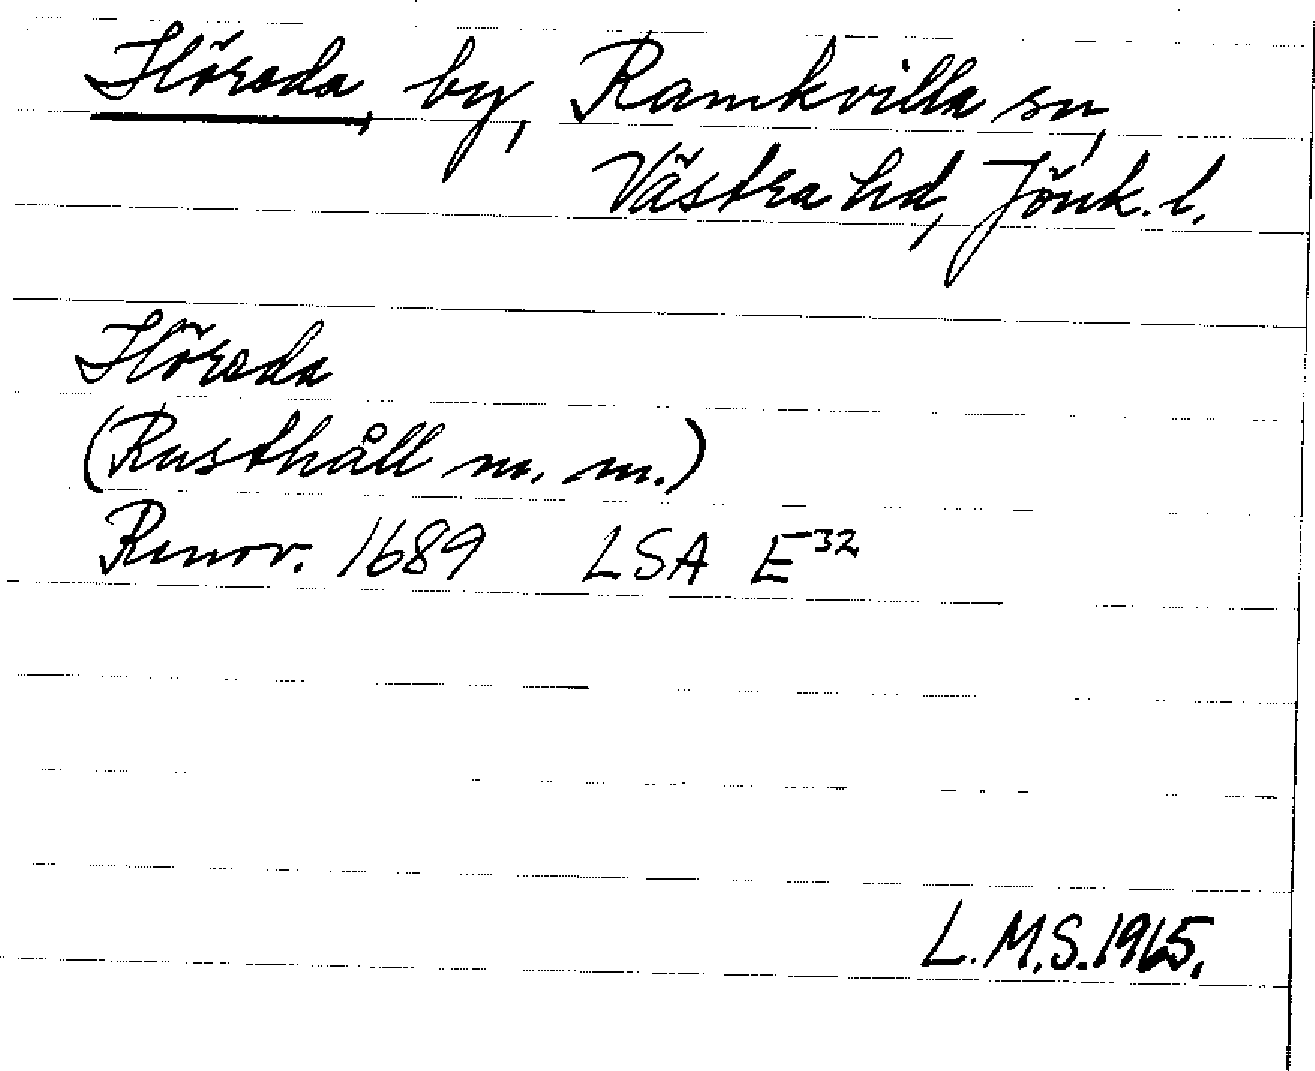 Flöreda, by, Ramkvilla sn,
Västra hd, Jönk. l.
Flöreda
(Rusthåll m. m.)
Renov. 1689 LSA E32
L.M.S. 1965.